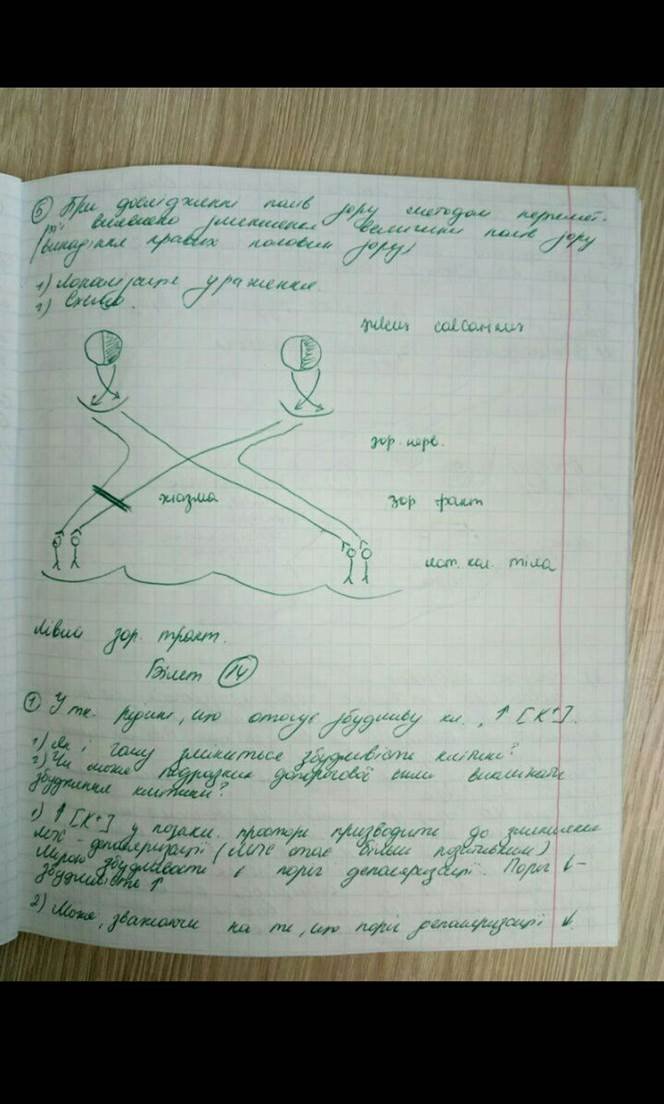 ⑤ При дослідженні полів зору методом периметрії виявлено зменшення величини полів зору
(випадіння правих половин зору)
1) Локалізація ураження.
2) Схема.
зор. нерв.
хіазма
зор. тракт
лат. кол. тіла
лівий зор. тракт.
Білет 14
① У тк. рідині, що оточує збудливу кл., ↑ [K⁺].
1) Як і чому зміниться збудливість клітини?
2) Чи може подразник допорогової сили викликати
збудження клітини?
1) ↑ [K⁺] у позакл. просторі призводить до зменшення
МПС - деполяризації (МПС стає більш позитивним)
Мірою збудливості є поріг деполяризації. Поріг ↓ -
збудливість ↑
2) Може, зважаючи на те, що поріг деполяризації ↓.